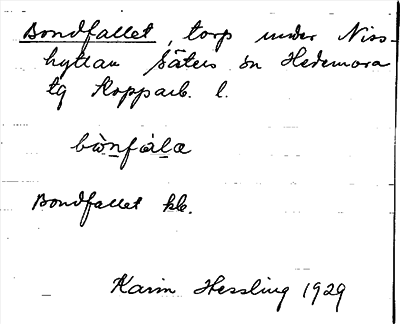 Bondfallet, torp under Niss-
hyttan Säters sn Hedemora
tg Kopparb. l.
Bondfallet kb.
Karin Hessling 1929